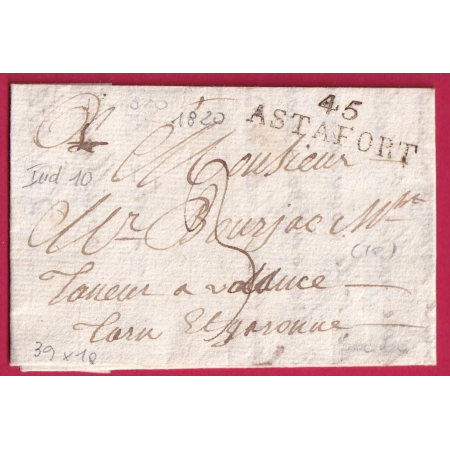 45
ASTAFORT
1820
A Monsieur
Ind 10
Mr Bourjac Md
(10)
Taneur a vallance
Tarn Et garonne
39 x 10